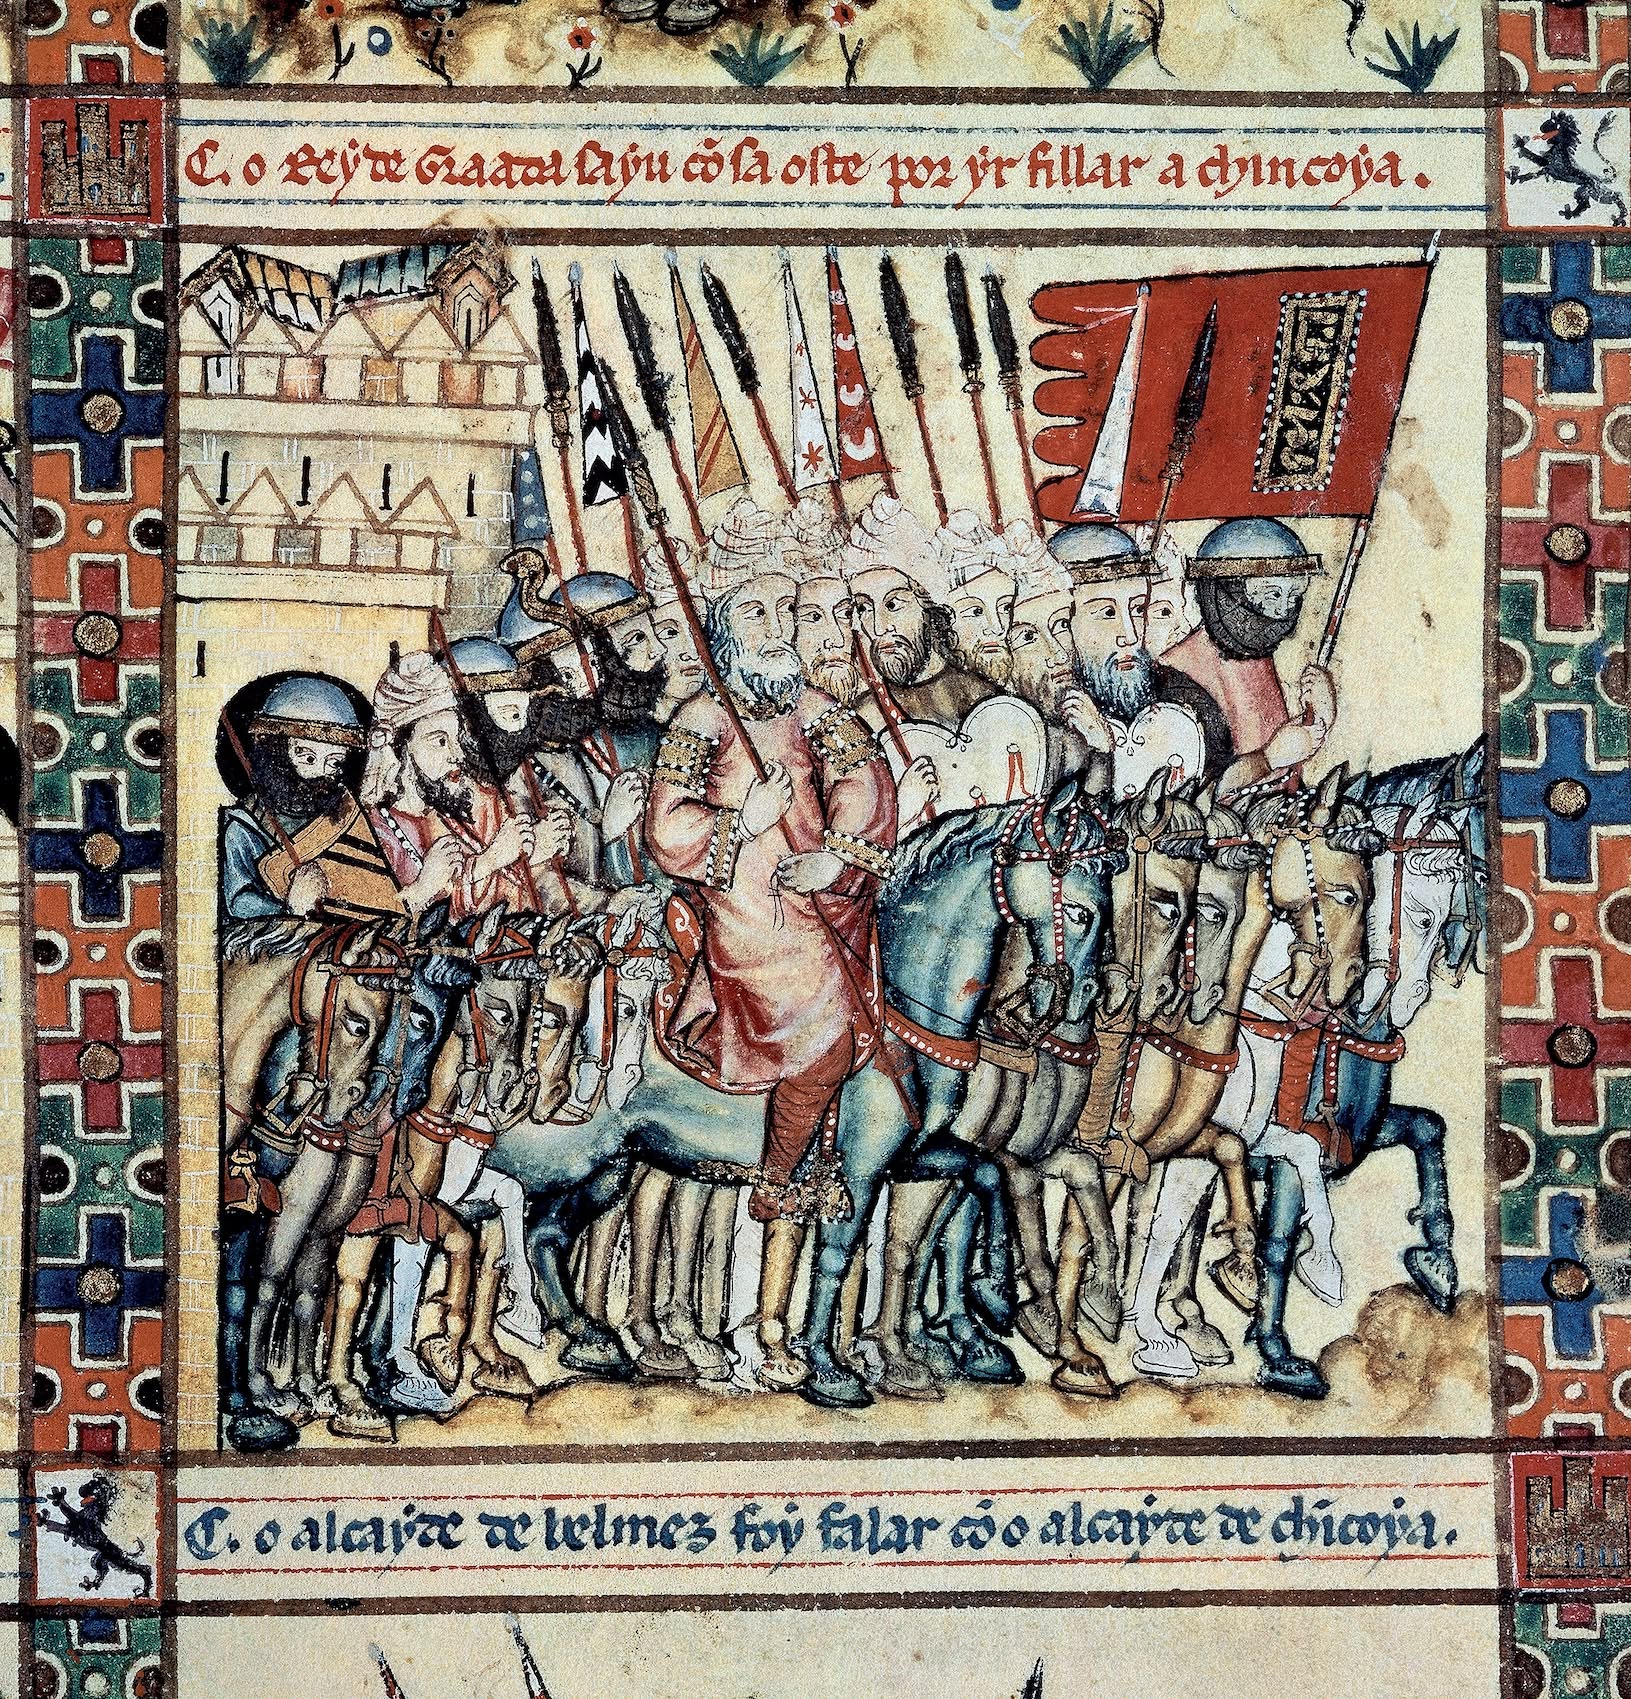 C. o Rey de Graada sayu cõ sa oste por yr fillar a chincoya.
C. o alcayde de belmez foy falar cõ o alcayde de chĩcoya.